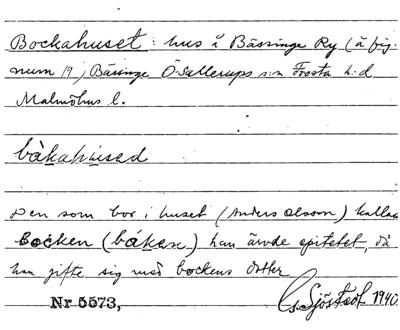 Bockahuset: hus å Bässinge Ry (å fig.
num 19) Bässinge Ö. Sallerups s:n Frosta h:d
Malmöhus l.
båkahused
Den som bor i huset (Anders Olsson) kallas
Bocken (båken) han ärvde epitetet, då
han gifte sig med bockens dotter
Nr 5573,
G. Sjöstedt 1940